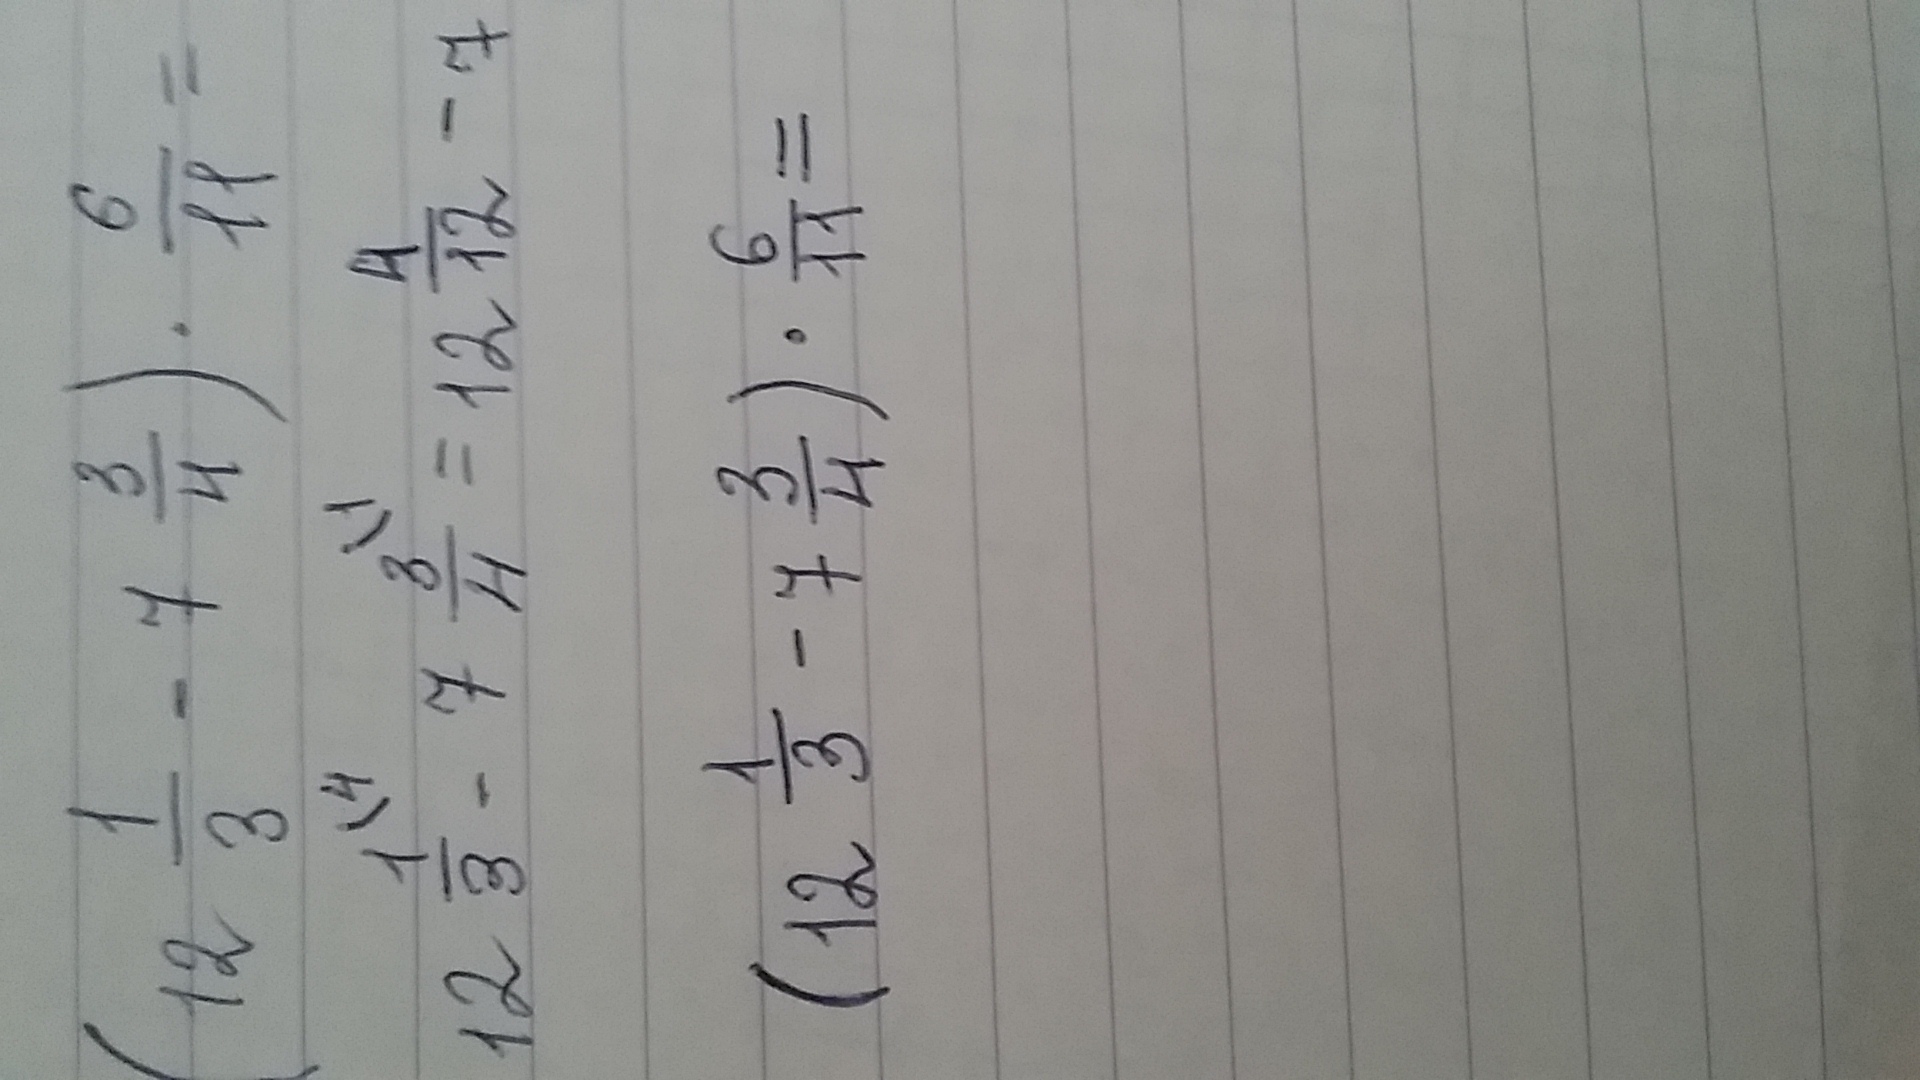 (12 1/3 - 7 3/4) · 6/11 =
12 1/3 (4 - 7 3/4 (1 = 12 4/12 - 7
(12 1/3 - 7 3/4) · 6/11 =